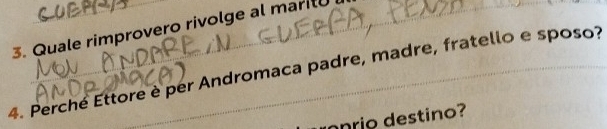 GUERRA
3. Quale rimprovero rivolge al marito
NON ANDARE IN GUERRA, PENSA
ANDROMACA)
4. Perché Ettore è per Andromaca padre, madre, fratello e sposo?
proprio destino?